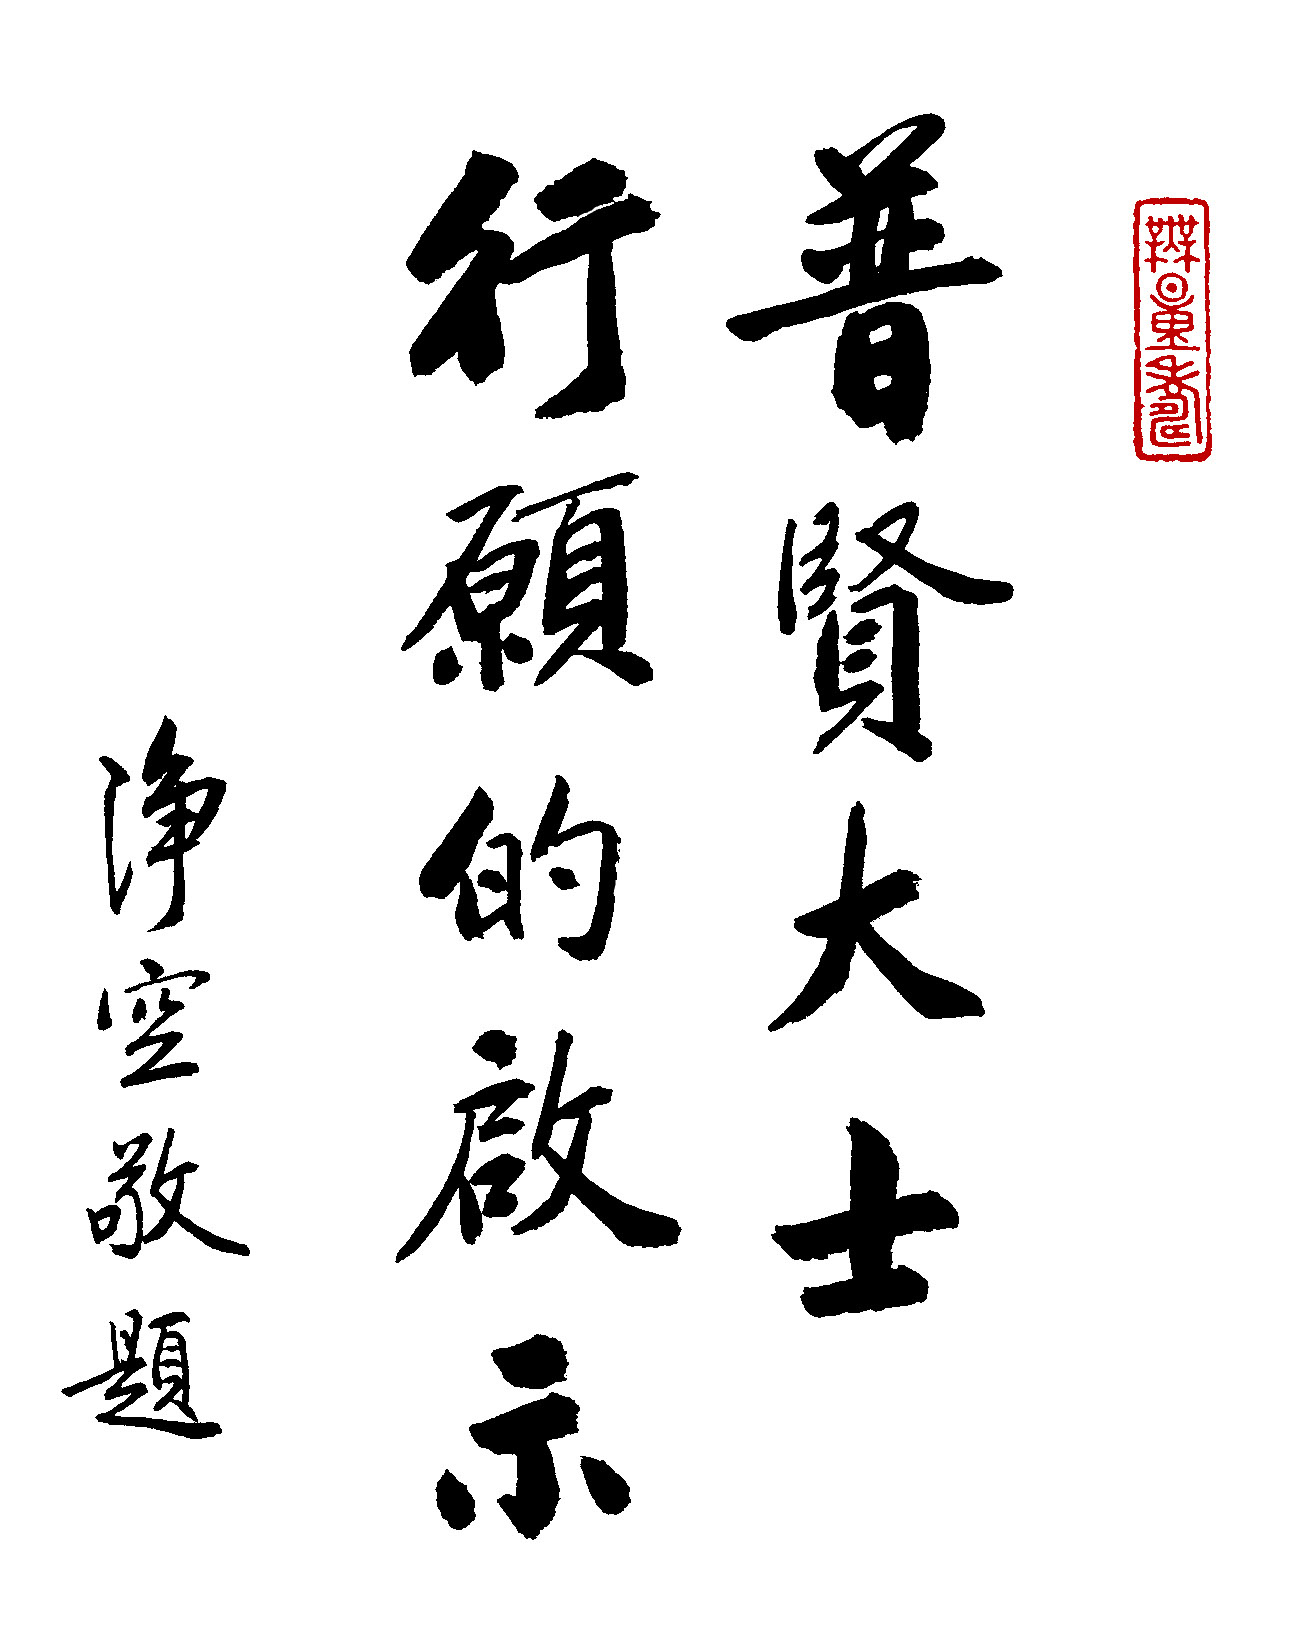 無量壽
普賢大士
行願的啟示
淨空敬題